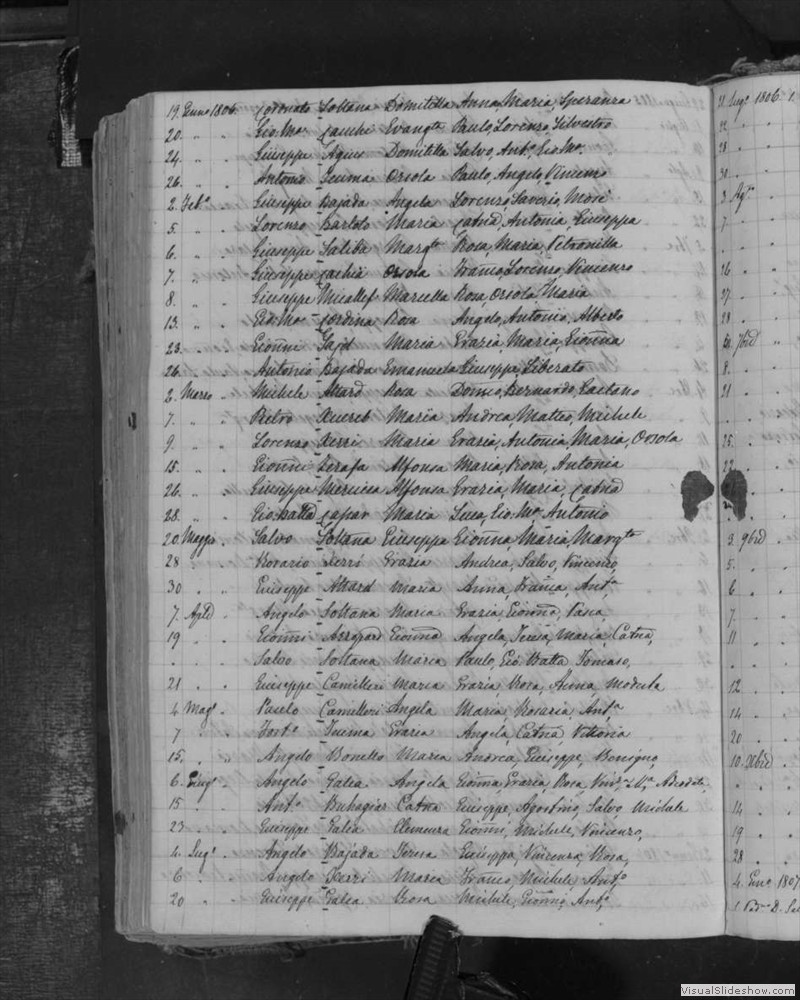 19. Enno 1806. Coronato Soltana Domitilla Anna, Maria, Speranza
20. " " Gio. Ma. Cauchi Evangta. Paulo, Lorenzo, Silvestro
24. " " Giuseppe Agius Domitilla Salvo, Anto, Gio. Ma.
26. " " Antonio Orsola Paulo, Angelo, Vincenzo
2. Feb. " Giuseppe Bajada Angela Lorenzo, Saverio,
5. " " Lorenzo Bartolo Maria Catna, Antonia, Giuseppa
6. " " Giuseppe Saliba Margta. Rosa, Maria, Petronilla
7. " " Giuseppe Cachia Orsola Franco, Lorenzo, Vincenzo
8. " " Giuseppe Micallef Mariella Rosa, Orsola, Maria
13. " " Gio. Ma. Cordina Rosa Angelo, Antonio, Alberto
23. " " Gionni Sajd Maria Grazia, Maria, Gionna
26. " " Antonio Bajada Emanuela Giuseppa, Liberata
2. Marzo " Michele Attard Rosa Bernardo, Gaetano
7. " " Pietro Xuereb Maria Andrea, Matteo, Michele
9. " " Lorenzo Xerri Maria Grazia, Antonia, Maria, Orsola
15. " " Gionni Zerafa Alfonsa Maria, Rosa, Antonia
26. " " Giuseppe Mercieca Alfonsa Grazia, Maria, Catna
28. " " Gio. Batta Caspar Maria Luca, Gio. Ma. Antonio
20. Maggio " Salvo Soltana Giuseppa Gionna, Maria, Margta.
28 " " Rosario Xerri Grazia Andrea, Salvo, Vincenzo,
30 " " Giuseppe Attard Maria Anna, Franca, Anta.
7. Aple " Angelo Soltana Maria Grazia, Gionna,
19 " " Gionni Azzopard Gionna Angela, Teresa, Maria, Catna,
. . . Salvo Soltana Maria Paulo, Gio Batta Tomaso,
21 . . Giuseppe Camilleri Maria Grazia Rosa, Anna, Modesta
4 Magg. . Paulo Camilleri Angela Maria, Rosaria, Anta.
7 . . Forto. Grazia Angela, Catna Vittoria
15. . . Angelo Bonello Maria Andrea, Giuseppe, Benigno
6 Giugo. Angelo Galea Angela Gionna, Grazia Rosa,
15 . . Anto. Buhagiar Catna Giuseppe, Agostino, Salvo Michele
23 . . Giuseppe Galea Clemenza Gionni, Michele, Vincenzo,
4. Lugo. . Angelo Bajada Teresa Giuseppa, Vincenza, Rosa,
6 . . Angelo Xerri Maria Franco Michele Anto.
20 . . Giuseppe Galea Rosa Michele, Gionni, Anto.
21 Lugo. 1806 1.
22 . .
28 . .
30 . .
3 Ago. .
7 . .
26 . .
27 . .
28 . .
7bre .
8 . .
21 . .
25 . .
22
3. 9bre .
5. . .
6 . .
7 . .
11 . .
. . .
12 . .
14 . .
20 . .
10. Xbre .
. . .
14 . .
19 . .
28 . .
4. Eno. 1807
VisualSlideshow.com